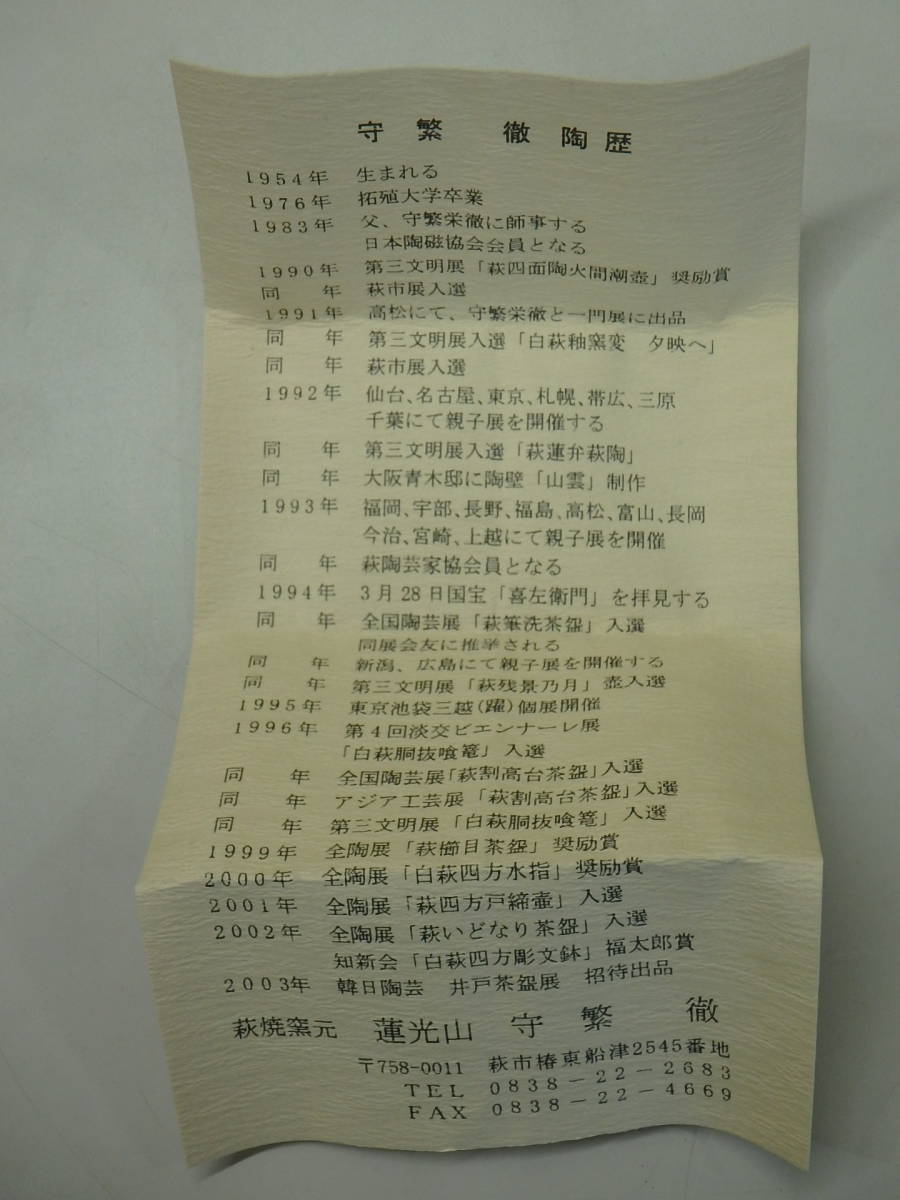 守繁　徹陶歴
1954年　生まれる
1976年　拓殖大学卒業
1983年　父、守繁栄徹に師事する
日本陶磁協会会員となる
1990年　第三文明展「萩四面陶火間潮壺」奨励賞
同　年　萩市展入選
1991年　高松にて、守繁栄徹と一門展に出品
同　年　第三文明展入選「白萩釉窯変　夕映へ」
同　年　萩市展入選
1992年　仙台、名古屋、東京、札幌、帯広、三原
千葉にて親子展を開催する
同　年　第三文明展入選「萩蓮弁萩陶」
同　年　大阪青木邸に陶壁「山雲」制作
1993年　福岡、宇部、長野、福島、高松、富山、長岡
今治、宮崎、上越にて親子展を開催
同　年　萩陶芸家協会員となる
1994年　3月28日国宝「喜左衛門」を拝見する
同　年　全国陶芸展「萩筆洗茶盌」入選
同展会友に推挙される
同　年　新潟、広島にて親子展を開催する
同　年　第三文明展「萩残景乃月」壺入選
1995年　東京池袋三越(躍)個展開催
1996年　第4回淡交ビエンナーレ展
「白萩胴抜喰篭」入選
同　年　全国陶芸展「萩割高台茶盌」入選
同　年　アジア工芸展「萩割高台茶盌」入選
同　年　第三文明展「白萩胴抜喰篭」入選
1999年　全陶展「萩櫛目茶盌」奨励賞
2000年　全陶展「白萩四方水指」奨励賞
2001年　全陶展「萩四方戸締壷」入選
2002年　全陶展「萩いどなり茶盌」入選
知新会「白萩四方彫文鉢」福太郎賞
2003年　韓日陶芸　井戸茶盌展　招待出品
萩焼窯元　蓮光山　守繁　徹
〒758-0011　萩市椿東船津2545番地
TEL　0838－22－2683
FAX　0838－22－4669